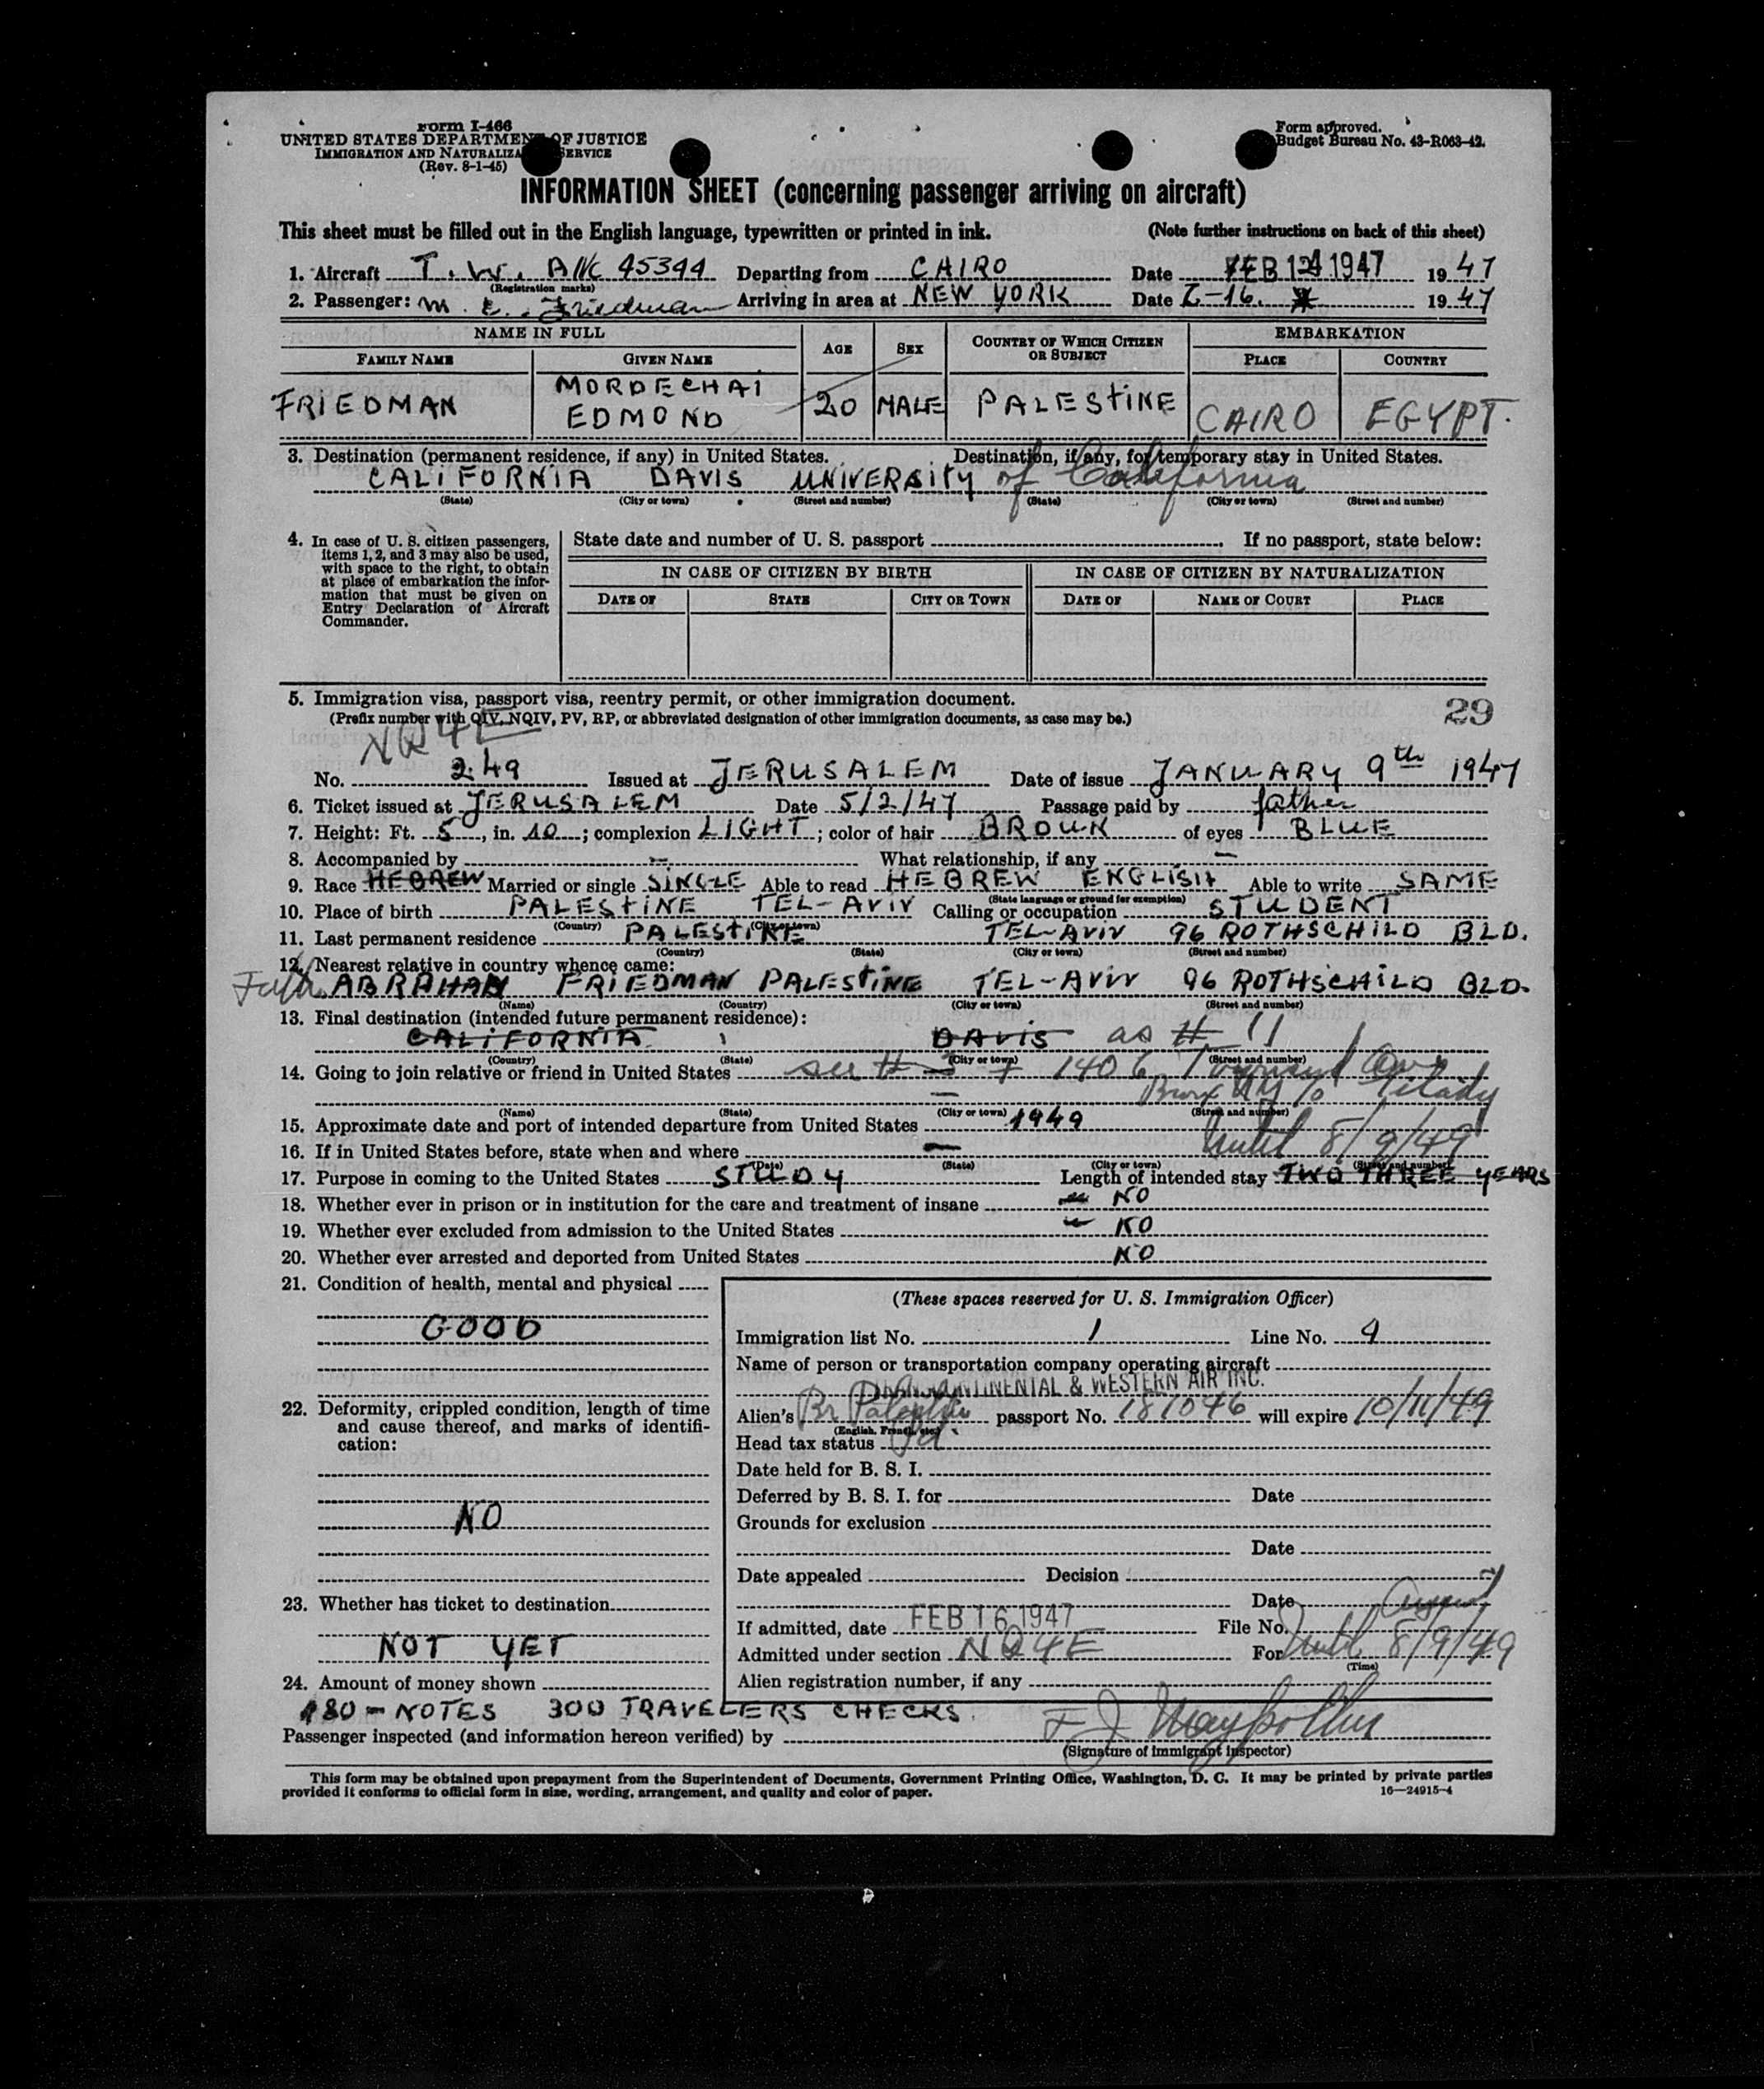 Form I-466
UNITED STATES DEPARTMENT OF JUSTICE
IMMIGRATION AND NATURALIZATION SERVICE
(Rev. 8-1-45)
Form approved.
Budget Bureau No. 43-R063-42.
INFORMATION SHEET (concerning passenger arriving on aircraft)
This sheet must be filled out in the English language, typewritten or printed in ink. (Note further instructions on back of this sheet)
1. Aircraft T.W. A Departing from CAIRO Date FEB 1947 1947
(Registration marks)
2. Passenger: M. E. Friedman Arriving in area at NEW YORK Date 2-16. 1947
NAME IN FULL AGE SEX COUNTRY OF WHICH CITIZEN OR SUBJECT EMBARKATION
FAMILY NAME GIVEN NAME PLACE COUNTRY
FRIEDMAN MORDECHAI EDMOND 20 MALE PALESTINE CAIRO EGYPT.
3. Destination (permanent residence, if any) in United States. Destination, if any, for temporary stay in United States.
CALIFORNIA DAVIS UNIVERSITY of California
(State) (City or town) (Street and number) (State) (City or town) (Street and number)
4. In case of U. S. citizen passengers, items 1, 2, and 3 may also be used, with space to the right, to obtain at place of embarkation the information that must be given on Entry Declaration of Aircraft Commander.
State date and number of U. S. passport If no passport, state below:
IN CASE OF CITIZEN BY BIRTH IN CASE OF CITIZEN BY NATURALIZATION
DATE OF STATE CITY OR TOWN DATE OF NAME OF COURT PLACE
5. Immigration visa, passport visa, reentry permit, or other immigration document. 29
(Prefix number with QIV, NQIV, PV, RP, or abbreviated designation of other immigration documents, as case may be.)
NQ4E
No. 249 Issued at JERUSALEM Date of issue JANUARY 9th 1947
6. Ticket issued at JERUSALEM Date 5/2/47 Passage paid by father
7. Height: Ft. 5, in. 10; complexion LIGHT; color of hair BROUN of eyes BLUE
8. Accompanied by — What relationship, if any —
9. Race HEBREW Married or single SINGLE Able to read HEBREW ENGLISH Able to write SAME
(State language or ground for exemption)
10. Place of birth PALESTINE TEL-AVIV Calling or occupation STUDENT
(Country) (City or town)
11. Last permanent residence PALESTINE TEL-AVIV 96 ROTHSCHILD BLD.
(Country) (State) (City or town) (Street and number)
12. Nearest relative in country whence came:
ABRAHAM FRIEDMAN PALESTINE TEL-AVIV 96 ROTHSCHILD BLD.
(Name) (Country) (City or town) (Street and number)
13. Final destination (intended future permanent residence):
CALIFORNIA DAVIS as # 11
(Country) (State) (City or town) (Street and number)
14. Going to join relative or friend in United States see # 3 + 1406
(Name) (State) (City or town) (Street and number)
15. Approximate date and port of intended departure from United States 1949
until 8/9/49
16. If in United States before, state when and where —
(Date) (State) (City or town) (Street and number)
17. Purpose in coming to the United States STUDY Length of intended stay TWO THREE YEARS
18. Whether ever in prison or in institution for the care and treatment of insane NO
19. Whether ever excluded from admission to the United States NO
20. Whether ever arrested and deported from United States NO
21. Condition of health, mental and physical
GOOD
22. Deformity, crippled condition, length of time and cause thereof, and marks of identification:
NO
23. Whether has ticket to destination
NOT YET
24. Amount of money shown
180 - NOTES 300 TRAVELERS CHECKS
(These spaces reserved for U. S. Immigration Officer)
Immigration list No. 1 Line No. 9
Name of person or transportation company operating aircraft
TRANSCONTINENTAL & WESTERN AIR INC.
Alien's Br Palestine passport No. 181046 will expire 10/11/49
(English, French, etc.)
Head tax status Pd.
Date held for B. S. I.
Deferred by B. S. I. for Date
Grounds for exclusion
Date
Date appealed Decision
Date
If admitted, date FEB 16 1947 File No.
Admitted under section NQ4E For Until 8/9/49
(Time)
Alien registration number, if any
Passenger inspected (and information hereon verified) by
(Signature of immigrant inspector)
This form may be obtained upon prepayment from the Superintendent of Documents, Government Printing Office, Washington, D. C. It may be printed by private parties
provided it conforms to official form in size, wording, arrangement, and quality and color of paper. 16—24915-4